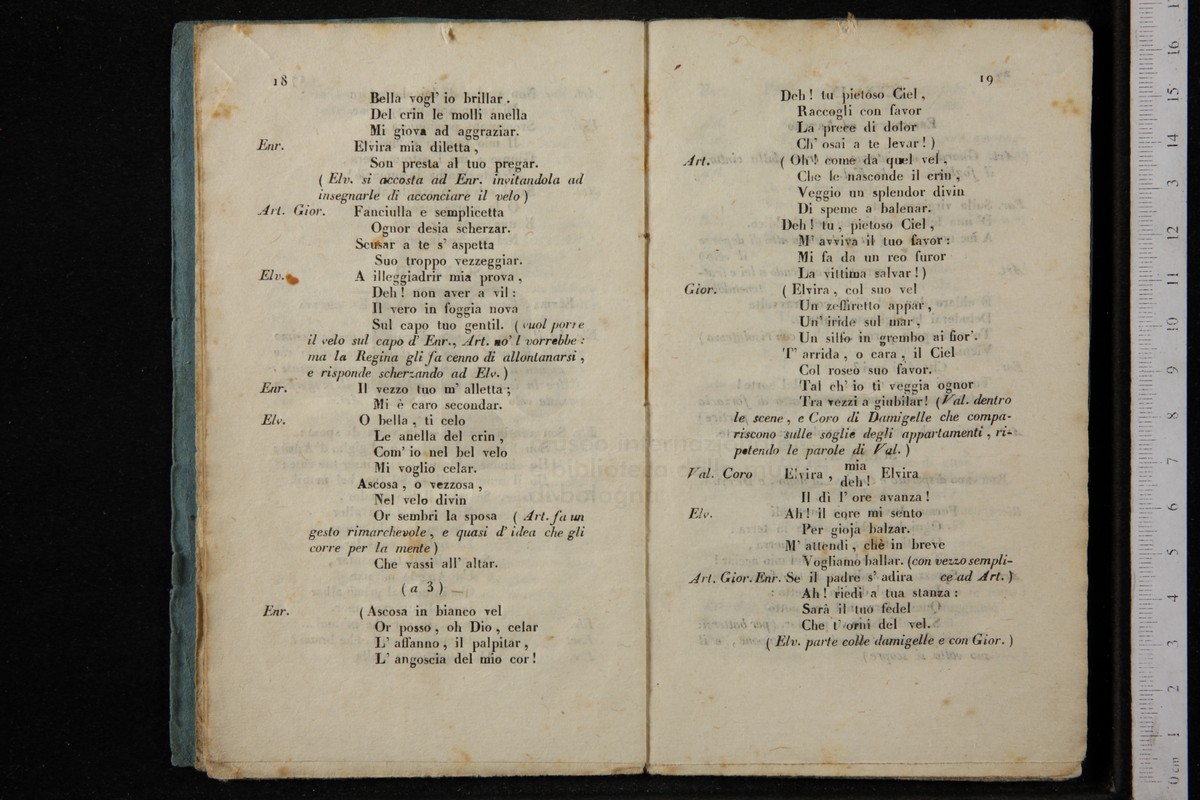 18
Bella vogl' io brillar.
Del crin le molli anella
Mi giova ad aggraziar.
Enr. Elvira mia diletta,
Son presta al tuo pregar.
( Elv. si accosta ad Enr. invitandola ad
insegnarle di acconciare il velo )
Art. Gior. Fanciulla e semplicetta
Ognor desia scherzar.
Scusar a te s' aspetta
Suo troppo vezzeggiar.
Elv. A illeggiadrir mia prova,
Deh! non aver a vil:
Il vero in foggia nova
Sul capo tuo gentil. ( vuol porre
il velo sul capo d' Enr., Art. no' l vorrebbe:
ma la Regina gli fa cenno di allontanarsi,
e risponde scherzando ad Elv. )
Enr. Il vezzo tuo m' alletta;
Mi è caro secondar.
Elv. O bella, ti celo
Le anella del crin,
Com' io nel bel velo
Mi voglio celar.
Ascosa, o vezzosa,
Nel velo divin
Or sembri la sposa ( Art. fa un
gesto rimarchevole, e quasi d' idea che gli
corre per la mente )
Che vassi all' altar.
( a 3 )
Enr. ( Ascosa in bianco vel
Or posso, oh Dio, celar
L' affanno, il palpitar,
L' angoscia del mio cor!
19
Deh! tu pietoso Ciel,
Raccogli con favor
La prece di dolor
Ch' osai a te levar! )
Art. ( Oh! come da' quel vel,
Che le nasconde il crin,
Veggio un splendor divin
Di speme a balenar.
Deh! tu, pietoso Ciel,
M' avviva il tuo favor:
Mi fa da un reo furor
La vittima salvar! )
Gior. ( Elvira, col suo vel
Un zeffiretto appar,
Un' iride sul mar,
Un silfo in grembo ai fior'.
T' arrida, o cara, il Ciel
Col roseo suo favor.
Tal ch' io ti veggia ognor
Tra vezzi a giubilar! ( Val. dentro
le scene, e Coro di Damigelle che compa-
riscono sulle soglie degli appartamenti, ri-
petendo le parole di Val. )
Val. Coro Elvira, mia Elvira
deh!
Il dì l' ore avanza!
Elv. Ah! il core mi sento
Per gioja balzar.
M' attendi, chè in breve
Vogliamo ballar. (con vezzo sempli-
Art. Gior. Enr. Se il padre s' adira ce ad Art. )
Ah! riedi a tua stanza:
Sarà il tuo fedel
Che t' orni del vel.
( Elv. parte colle damigelle e con Gior. )